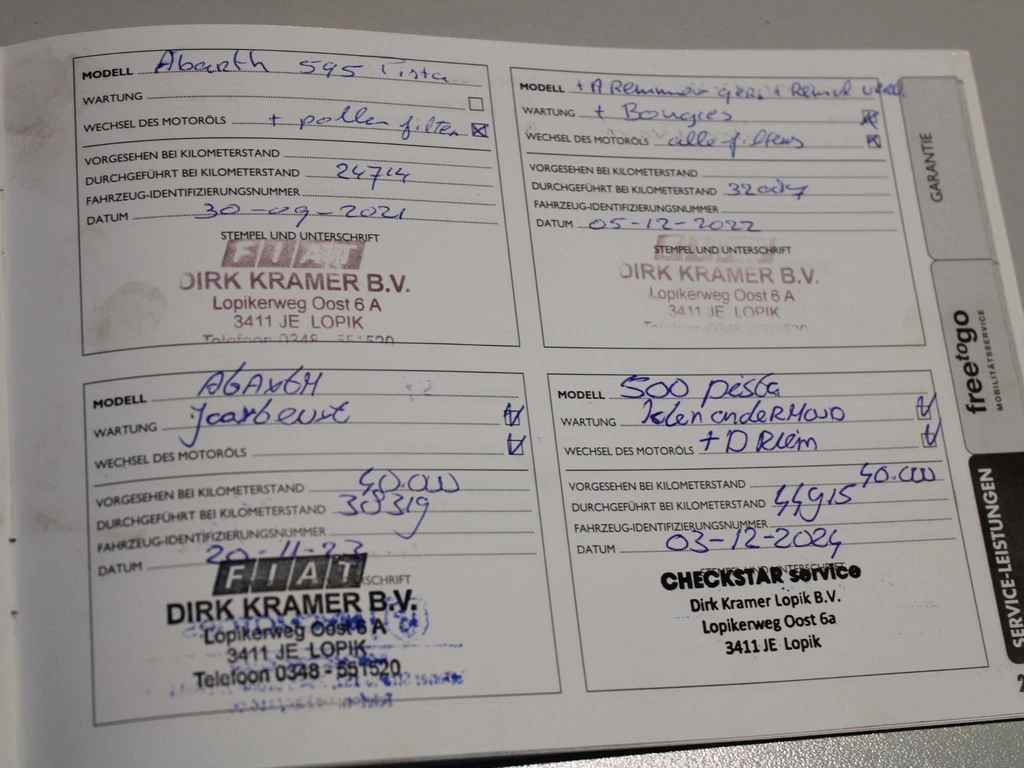 MODELL Abarth 595 Pista
WARTUNG
WECHSEL DES MOTORÖLS + pollen filter
VORGESEHEN BEI KILOMETERSTAND
DURCHGEFÜHRT BEI KILOMETERSTAND 24714
FAHRZEUG-IDENTIFIZIERUNGSNUMMER
DATUM 30-09-2021
STEMPEL UND UNTERSCHRIFT
FIAT
DIRK KRAMER B.V.
Lopikerweg Oost 6 A
3411 JE LOPIK
Telefoon 0348 - 551520
MODELL + A Remmen + Remvl
WARTUNG + Bougies
WECHSEL DES MOTORÖLS alle filters
VORGESEHEN BEI KILOMETERSTAND
DURCHGEFÜHRT BEI KILOMETERSTAND
FAHRZEUG-IDENTIFIZIERUNGSNUMMER
DATUM 05-12-2022
STEMPEL UND UNTERSCHRIFT
DIRK KRAMER B.V.
Lopikerweg Oost 6 A
3411 JE LOPIK
MODELL AbARtH
WARTUNG Jaarbeurt
WECHSEL DES MOTORÖLS
VORGESEHEN BEI KILOMETERSTAND 40.000
DURCHGEFÜHRT BEI KILOMETERSTAND 38319
FAHRZEUG-IDENTIFIZIERUNGSNUMMER
DATUM 20-11-23
FIAT
DIRK KRAMER B.V.
Lopikerweg Oost 6 A
3411 JE LOPIK
Telefoon 0348 - 551520
MODELL 500 pista
WARTUNG
WECHSEL DES MOTORÖLS + D Riem
VORGESEHEN BEI KILOMETERSTAND 40.000
DURCHGEFÜHRT BEI KILOMETERSTAND 44915
FAHRZEUG-IDENTIFIZIERUNGSNUMMER
DATUM 03-12-2024
STEMPEL UND UNTERSCHRIFT
CHECKSTAR service
Dirk Kramer Lopik B.V.
Lopikerweg Oost 6a
3411 JE Lopik
GARANTIE
freetogo
MOBILITÄTSSERVICE
SERVICE-LEISTUNGEN